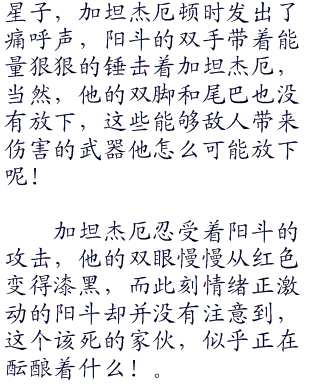 星子，加坦杰厄顿时发出了
痛呼声，阳斗的双手带着能
量狠狠的锤击着加坦杰厄，
当然，他的双脚和尾巴也没
有放下，这些能够敌人带来
伤害的武器他怎么可能放下
呢！
加坦杰厄忍受着阳斗的
攻击，他的双眼慢慢从红色
变得漆黑，而此刻情绪正激
动的阳斗却并没有注意到，
这个该死的家伙，似乎正在
酝酿着什么！。